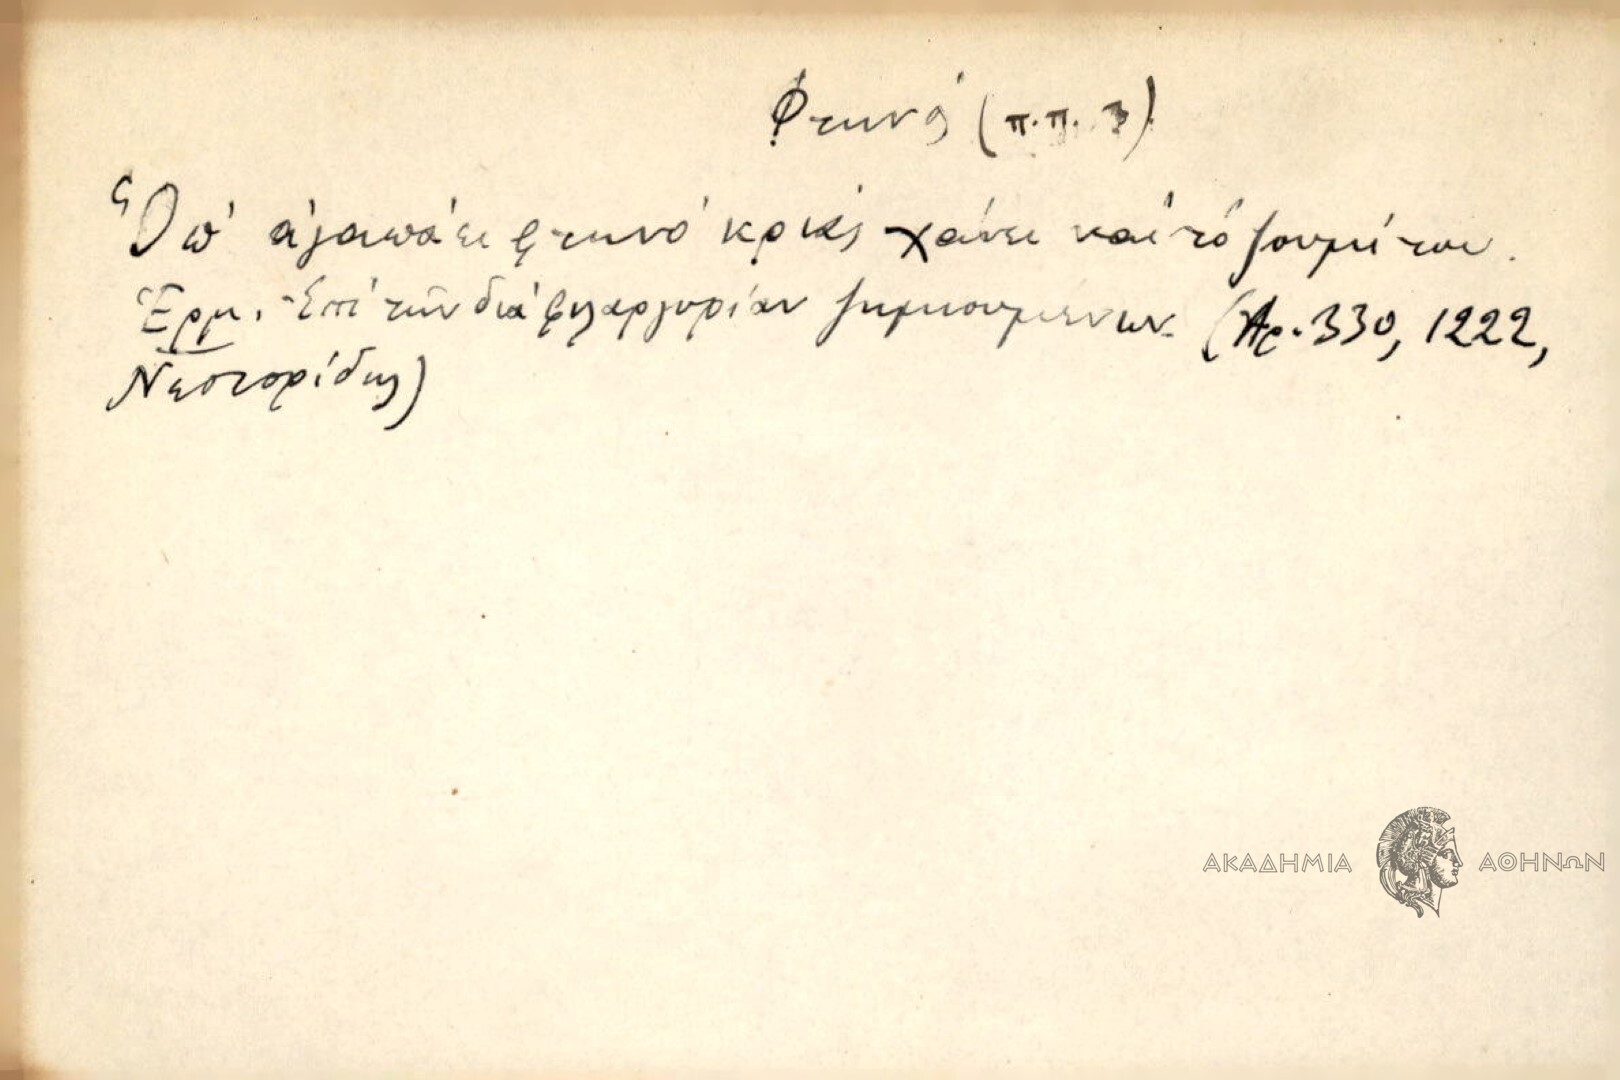 Φτηνό (π.π. 3)
Ὁπ' ἀγαπάει φτηνό κριάς χάνει καί τό ζουμί του.
Ἑρμ. Ἐπί τῶν διά φιλαργυρίαν ζημιουμένων. (Ἀρ. 330, 1222,
Νεστορίδης)
ΑΚΑΔΗΜΙΑ ΑΘΗΝΩΝ